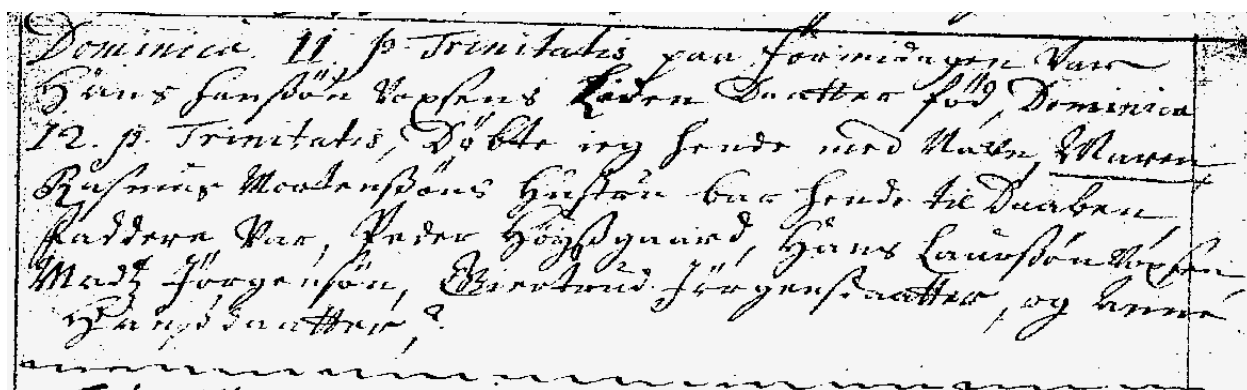 Dominica 11 p. Trinitatis paa formidagen Var
Hans Hanssøn Voxsens Liden Daatter fød, Dominica
12. p. Trinitatis, Døbte ieg hende med Navn, Maren
Rasmus Mortenssøns Hustru bar hende til Daaben,
faddere Var, Peder Høyssgaard, Hans Laurssøn Voxsen,
Madz Jørgensøn, Giertrud Jørgensdaatter, og Anne
Hansdaatter,